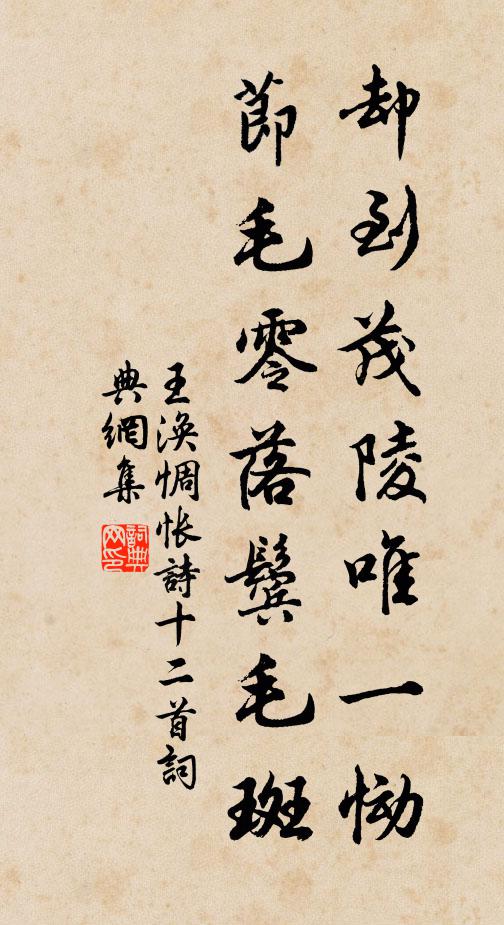 却到茂陵唯一慟
節毛零落鬢毛斑
王渙惆悵詩十二首詞
典網集
詞典
网印